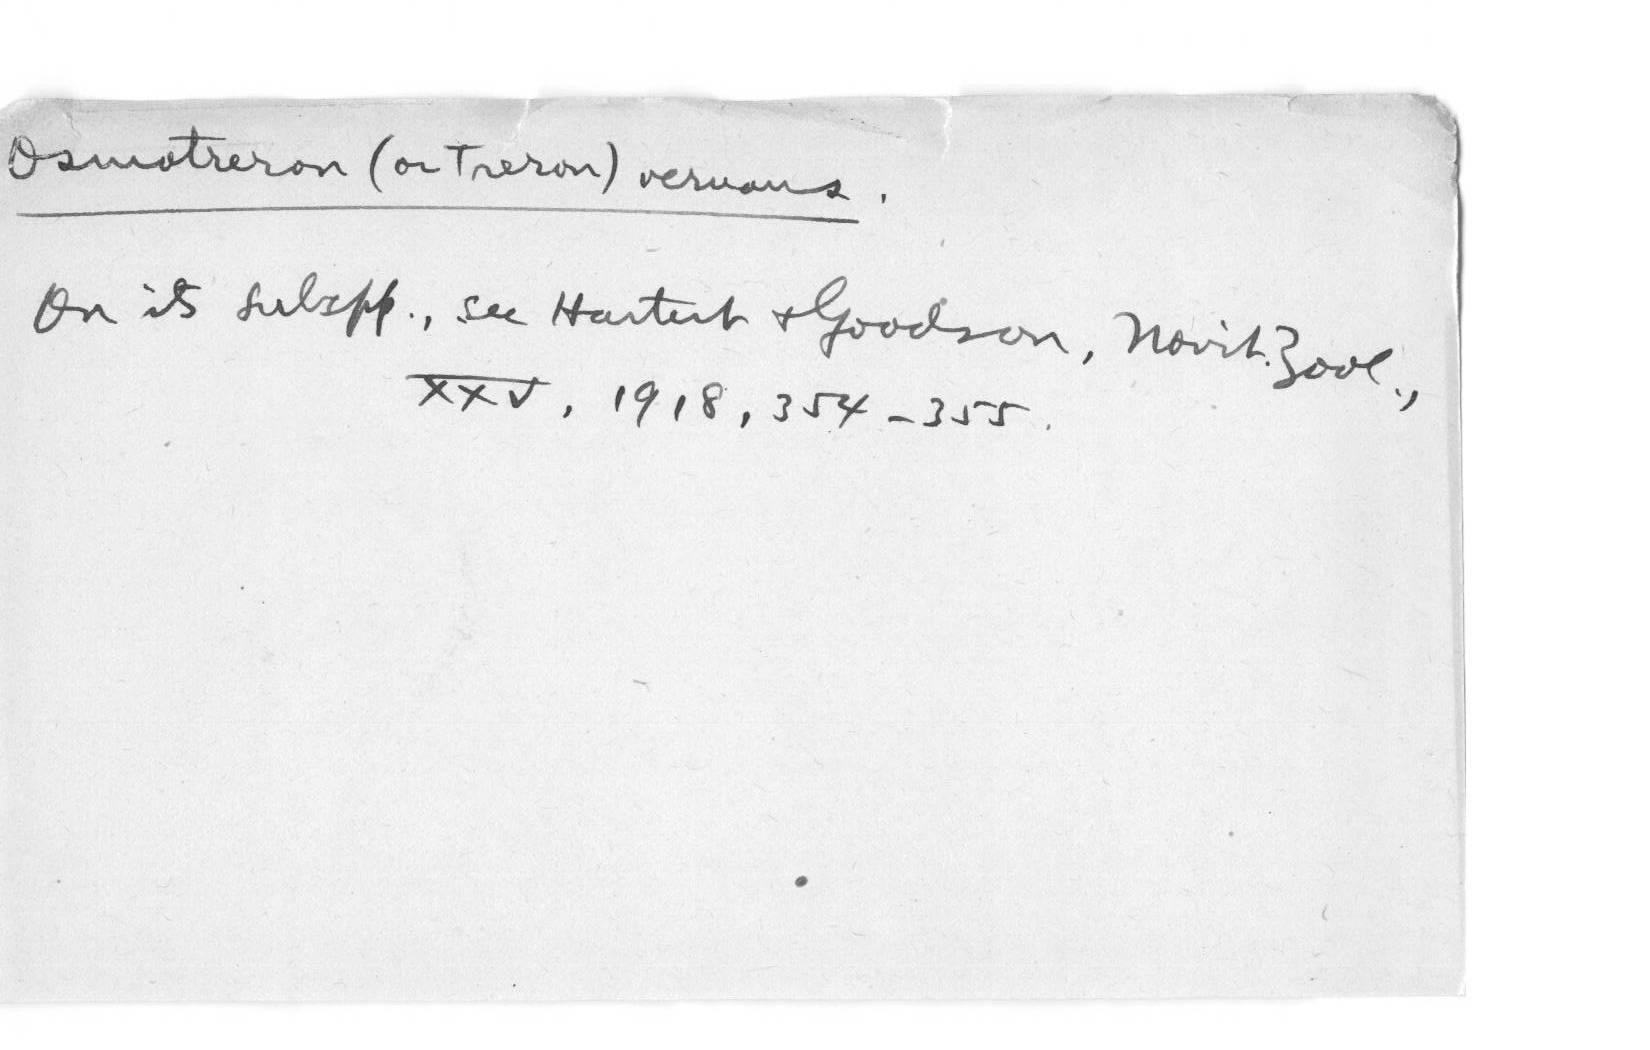 Osmotreron (or Treron) vernans.
On its subspp., see Hartert & Goodson, Novit. Zool.,
XXV, 1918, 354-355.